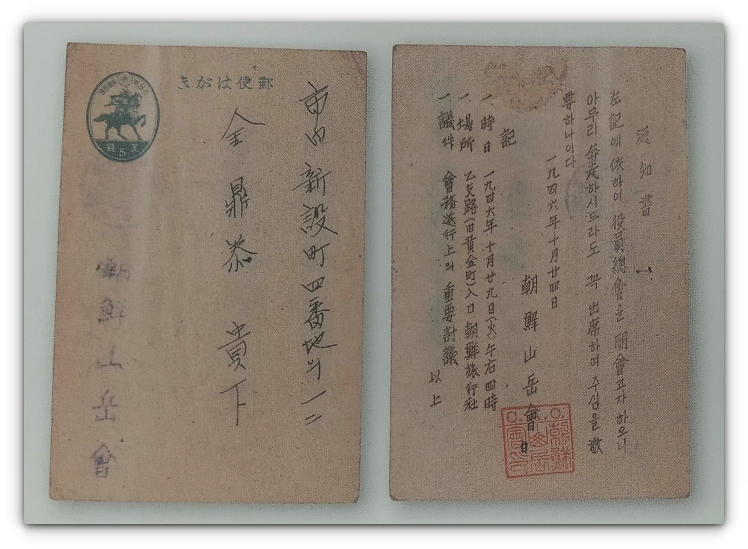 郵便はがき
5
市內 新設町 四番地의 一二
金鼎泰 貴下
朝鮮山岳會
通知書
左記에 依하여 役員總會를 開會코자 하오니
아무리 奔走하시드라도 꼭 出席하여 주심을 敬
要하나이다
一九四六年十月廿四日
朝鮮山岳會
記
一. 時日 一九四六年十月廿九日(火)午后四時
一. 場所 乙支路(旧黃金町)入口 朝鮮旅行社
一. 議件 會務遂行上의 重要討議
以上